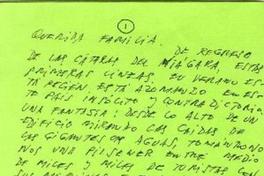 1
QUERIDA FAMILIA.
DE REGRESO
DE LAS CATARAS DEL NIÁGARA, ESTAS
PRIMERAS LINEAS. EN VERANO ES
TA REGEN. ESTÁ ASOMANDO EN ES-
TE PAIS INSOLITO Y CONTRADICTORIO,
UNA FANTASIA: DESDE LO ALTO DE UN
EDIFICIO MIRANDO LAS CAIDAS DE
LAS GIGANTES AGUAS, TOMANDO
NOS UNA PILSENER ENTRE MEDIO
DE MILES Y MILES DE TURISTAS CON
SUS